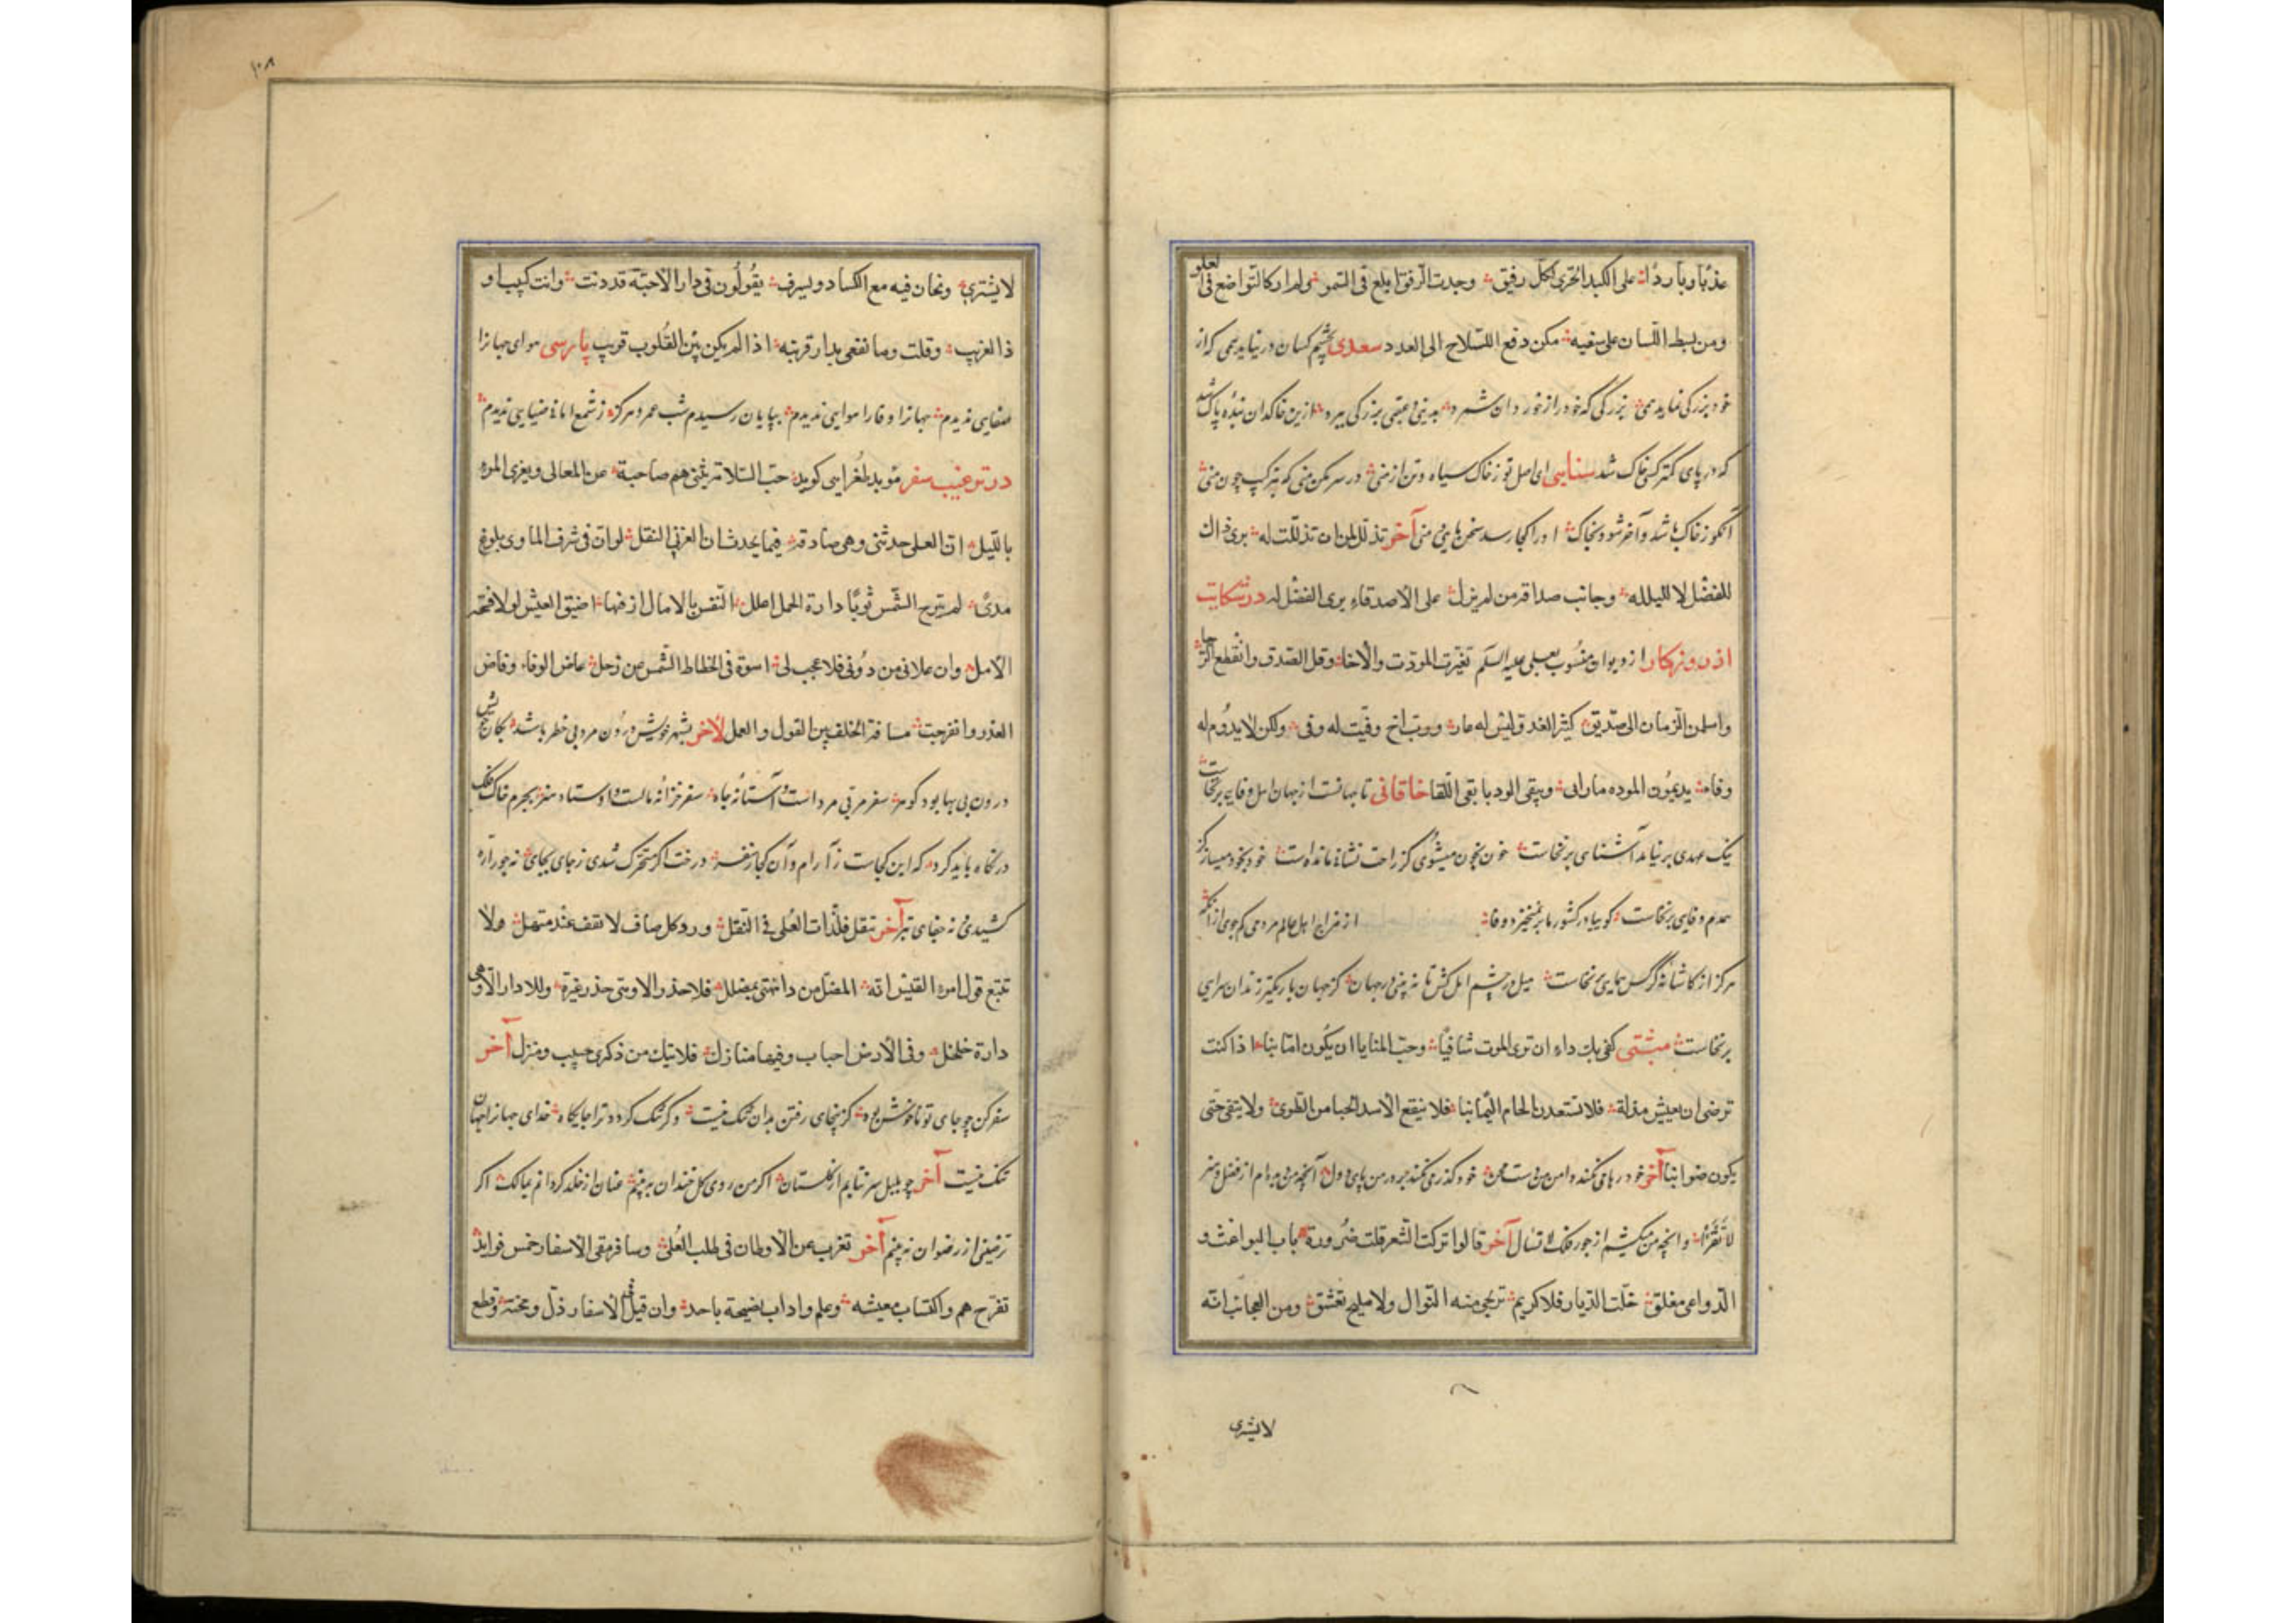 عذبا وباردا على الكبد الحرى لكل رفيق وجدت الرفق ابلغ فى السمو ولم ار كالتواضع فى العلو
ومن بسط اللسان على سفيه مكن دفع السلاح الى العدو سعدى بچشم کسان در نیاید کسی که از
خود بزرگی نماید همی بزرگی که خود را ز خوردان شمرد بدینی و عقبی بزرگی ببرد ازین خاکدان بنده پاک شد
که در پای کمتر کسی خاک شد سنایی ای اصل تو ز خاک سیاه و تن از منی در سر مکن منی که بترکیب چون منی
آنکو ز خاک باشد و آخر شود بخاک او را کجا رسد سخن مایی و منی آخر تذلل لمن ان تذللت له يرى ذاك
للفضل لا للبله وجانب صداقة من لم يزل على الاصدقاء يرى الفضل له در شکایت
از روزگار از دیوان منسوب بعلی علیه السلم تغيرت المودة والاخا وقل الصدق وانقطع الرجا
واسلمنى الزمان الى صديق كثير الغدر ليس له عار ورب اخ وفيت له وفى ولكن لا يدوم له
وفاء يديمون الموده ما راونى ويبقى الود ما بقى اللقا خاقانی تا جهانست از جهان اهل وفایی برنخاست
نیک عهدی بر نیامد آشنایی برنخاست خون بخون میشوی کز راحت نشانی مانده است خود بخود میساز کز
همدم وفایی برنخاست گوییا در کشور ما بر نمیخیزد وفا از مزاج اهل عالم مردمی کم جوی از آنکه
هرگز از کاشانه کرکس همایی نخاست میل در چشم امل کش تا نه بینی در جهان کز جهان تاریکتر زندان سرایی
برنخاست متنبی كفى بك داء ان ترى الموت شافيا وحب المنايا ان يكون امانيا اذا كنت
ترضى ان يعيش مذلة فلا تستعدن الحام اليمانيا فلا ينفع الاسد الحيا من الطوى ولا يتقى حتى
يكون ضواريا آخر
لا تقرأ و انچه من میکشم از جور فلک لا تسال آخر قالوا تركت الشعر قلت ضرورة باب البواعث و
الدواعى مغلق خلت الديار فلا كريم ترتجى منه النوال ولا مليح تعشق ومن العجائب انه
لا یشتری
۱۰۸
لا يشترى ونخان فيه مع الكساد ويسرق يقولون فى دار الاحبة قد دنت وانت كئيب و
ذا العزيب وقلت وما نفعى بدار قريبة اذا لم يكن بين القلوب قريب پارسی هوای جهان را
صفایی ندیدم جهان را و فا را هوایی ندیدم بپایان رسیدم شب عمر و هرگز ز شمع امانی ضیایی ندیدم
در ترغیب سفر مؤید طغرایی کوید حب السلامة يثنى هم صاحبة عن المعالى ويغرى المرء
بالليل ان العلى حدثنى وهى صادقة فيما يحدث ان العز فى النقل لو ان فى شرف الماوى بلوغ
مدى لم تبرح الشمس ثوبا دارة الحمل اعلل النفس بالامال ارقبها ما اضيق العيش لولا فسحة
الامل وان علانى من دونى فلا عجب لى اسوة فى انحطاط الشمس عن زحل غاض الوفاء وفاض
الغدر وانفرجت مسافة الخلف بين القول والعمل لآخر بشهر خویش درون مرد بی خطر باشد بکان خویش
درون بی بها بود گوهر سفر مربی مردانست و آستانه جاه سفر خزانه مالست و اوستاد هنر بجرم خاک و فلک
در نگاه باید کرد که این کجاست ز آرام و آن کجا ز سفر درخت اگر متحرک شدی ز جای بجای نه جور اره
کشیدی و نه جفای تبر آخر تنقل فلذات العلى فى التنقل ورد كل صاف لا تقف عند منهل ولا
تتبع قول امرء القيس انه المضل من ذا يهتدى بمضلل
دارة جلجل وفى الارض احباب وفيها منازل فلا تبك من ذكرى حبيب ومنزل آخر
سفر کن چو جای تو ناخوش بود کز اینجای رفتن بدان ننگ نیست وگر تنگ گردد ترا جایگاه خدای جهان را جهان
تنگ نیست آخر چو بلبل سر نتابم از گلستان اگر من روی گل خندان نه بینم عنان از خلد گردانم عیا لک اگر
ترحیبی از رضوان نه بینم آخر تغرب عن الاوطان فى طلب العلى وسافر ففى الاسفار خمس فوايد
تفرج هم واكتساب معيشه وعلم واداب وصحبة ماجد وان قيل فى الاسفار ذل ومحنة وقطع